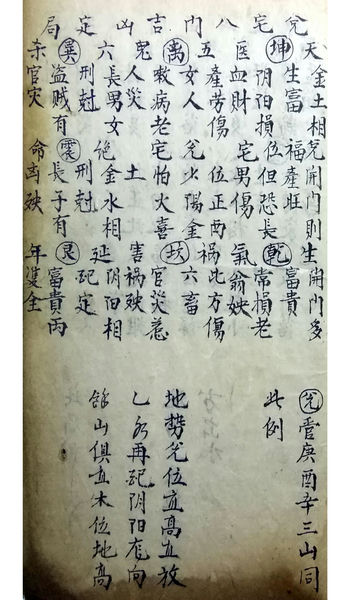 兌宅八門吉凶定局
天金土相兌開門則生開門多
坤生富福產旺乾富貴
阴阳損位但恐長常損老
医血財宅男傷氣翁殃
五產劳傷位正西禍此方傷
离女人兌少陽金坎六畜
救病老宅怕火喜官災惹
鬼人災土害禍殃
六長男女绝金水相延阴阳相
巽刑尅震刑尅配定
盗贼有長子有艮富貴丙
杀官灾命殃年雙全
兌庚酉辛三山同
此例
地勢兌位宜高宜放
乙水再配阴阳龙向
餘山俱宜木位地高